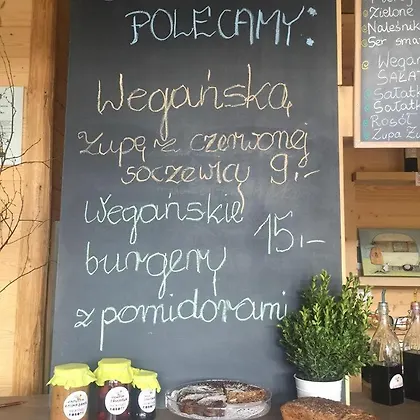 POLECAMY:
Wegańską
Zupę z czerwonej
soczewicy 9,-
Wegańskie
burgery 15,-
z pomidorami
Zielone
Naleśnik
Ser sma
Wegań
SAŁA
Sałatk
Sałatk
Rosół
Zupa z